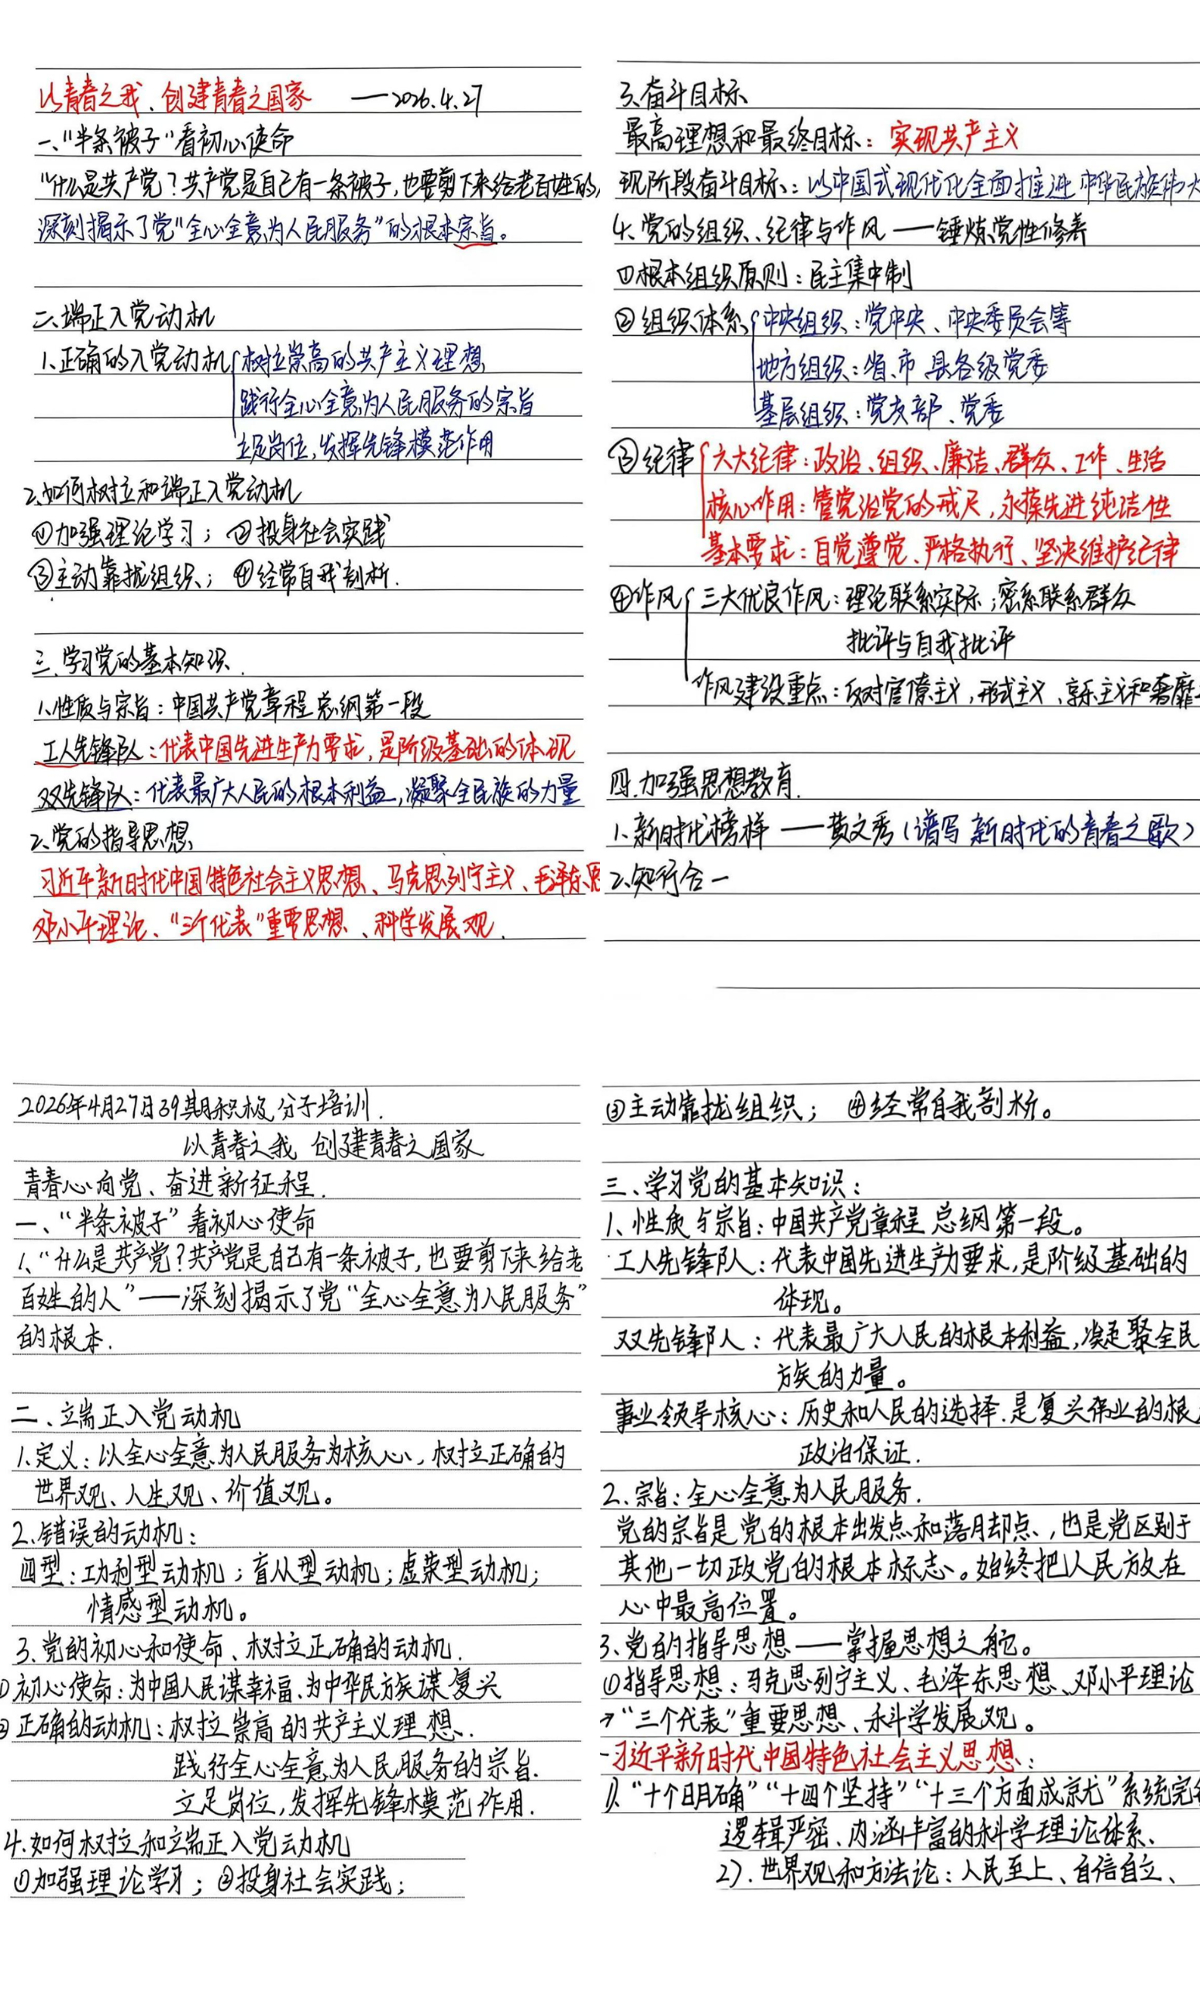 以青春之我、创建青春之国家 ——2026.4.27
一、“半条被子”看初心使命
“什么是共产党？共产党是自己有一条被子,也要剪下来给老百姓的
深刻揭示了党“全心全意为人民服务”的根本宗旨。
二、端正入党动机
1.正确的入党动机 树立崇高的共产主义理想
践行全心全意为人民服务的宗旨
立足岗位,发挥先锋模范作用
2.如何树立和端正入党动机
①加强理论学习；②投身社会实践
③主动靠拢组织；④经常自我剖析.
三.学习党的基本知识.
1.性质与宗旨：中国共产党章程总纲第一段
工人先锋队：代表中国先进生产力要求,是阶级基础的体现
双先锋队：代表最广大人民的根本利益,凝聚全民族的力量
2.党的指导思想
习近平新时代中国特色社会主义思想、马克思列宁主义、毛泽东思
邓小平理论、“三个代表”重要思想、科学发展观.
3.奋斗目标
最高理想和最终目标：实现共产主义
现阶段奋斗目标：以中国式现代化全面推进中华民族伟大
4.党的组织、纪律与作风——锤炼党性修养
①根本组织原则：民主集中制
②组织体系 中央组织：党中央、中央委员会等
地方组织：省、市、县各级党委
基层组织：党支部、党委
③纪律 六大纪律：政治、组织、廉洁、群众、工作、生活
核心作用：管党治党的戒尺,永葆先进纯洁性
基本要求：自觉遵党、严格执行、坚决维护纪律
④作风 三大优良作风：理论联系实际；密系联系群众
批评与自我批评
作风建设重点：反对官僚主义,形式主义、享乐主义和奢靡
四.加强思想教育.
1.新时代榜样——黄文秀(谱写新时代的青春之歌)
2.知行合一
2026年4月27日39期积极分子培训.
以青春之我 创建青春之国家
青春心向党、奋进新征程.
一、“半条被子”看初心使命
1、“什么是共产党？共产党是自己有一条被子,也要剪下来给老
百姓的人”——深刻揭示了党“全心全意为人民服务”
的根本.
二、端正入党动机
1.定义：以全心全意为人民服务为核心,树立正确的
世界观、人生观、价值观。
2.错误的动机：
四型：功利型动机；盲从型动机；虚荣型动机；
情感型动机。
3.党的初心和使命、树立正确的动机.
①初心使命：为中国人民谋幸福、为中华民族谋复兴
②正确的动机：树立崇高的共产主义理想.
践行全心全意为人民服务的宗旨.
立足岗位,发挥先锋模范作用.
4.如何树立和端正入党动机
①加强理论学习；②投身社会实践；
③主动靠拢组织； ④经常自我剖析。
三、学习党的基本知识：
1、性质与宗旨：中国共产党章程总纲第一段。
工人先锋队：代表中国先进生产力要求,是阶级基础的
体现。
双先锋队人：代表最广大人民的根本利益,凝聚全民
族的力量。
事业领导核心：历史和人民的选择.是复兴伟业的根
政治保证.
2.宗旨：全心全意为人民服务.
党的宗旨是党的根本出发点和落脚点,也是党区别于
其他一切政党的根本标志。始终把人民放在
心中最高位置。
3.党的指导思想——掌握思想之舵。
①指导思想：马克思列宁主义、毛泽东思想、邓小平理论
→“三个代表”重要思想、科学发展观。
-习近平新时代中国特色社会主义思想：
1).“十个明确”“十四个坚持”“十三个方面成就”系统完
逻辑严密、内涵丰富的科学理论体系、
2).世界观和方法论：人民至上、自信自立、